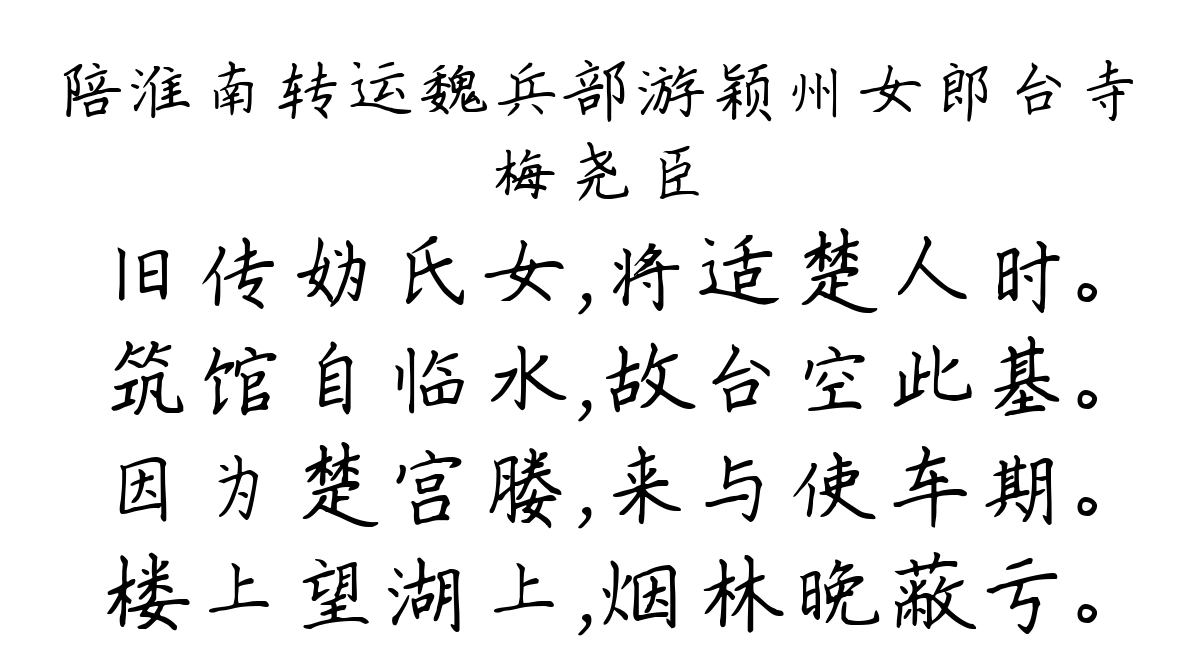 陪淮南转运魏兵部游颖州女郎台寺
梅尧臣
旧传妫氏女,将适楚人时。
筑馆自临水,故台空此基。
因为楚宫媵,来与使车期。
楼上望湖上,烟林晚蔽亏。